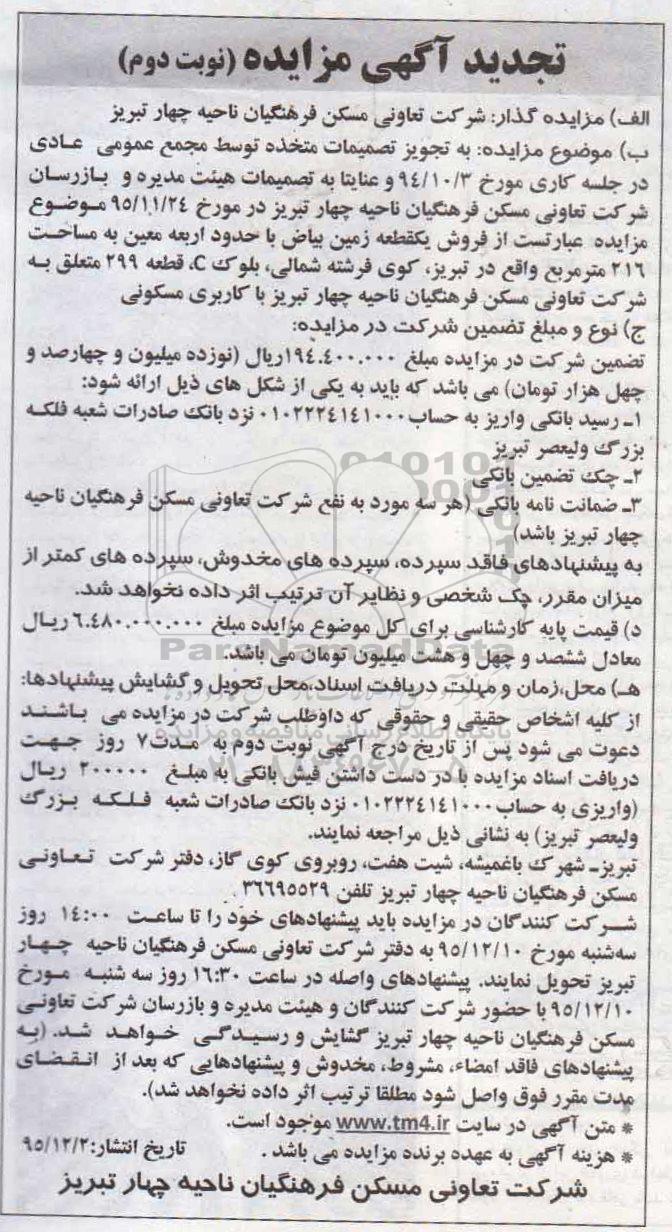 تجدید آگهی مزایده (نوبت دوم)
الف) مزایده گذار: شرکت تعاونی مسکن فرهنگیان ناحیه چهار تبریز
ب) موضوع مزایده: به تجویز تصمیمات متخذه توسط مجمع عمومی عادی
در جلسه کاری مورخ ۹۴/۱۰/۳ و عنایتا به تصمیمات هیئت مدیره و بازرسان
شرکت تعاونی مسکن فرهنگیان ناحیه چهار تبریز در مورخ ۹۵/۱۱/۲۴ موضوع
مزایده عبارتست از فروش یکقطعه زمین بیاض با حدود اربعه معین به مساحت
۲۱۶ مترمربع واقع در تبریز، کوی فرشته شمالی، بلوک C، قطعه ۲۹۹ متعلق به
شرکت تعاونی مسکن فرهنگیان ناحیه چهار تبریز با کاربری مسکونی
ج) نوع و مبلغ تضمین شرکت در مزایده:
تضمین شرکت در مزایده مبلغ ۱۹۴.۴۰۰.۰۰۰ریال (نوزده میلیون و چهارصد و
چهل هزار تومان) می باشد که باید به یکی از شکل های ذیل ارائه شود:
۱ـ رسید بانکی واریز به حساب ۰۱۰۲۲۲۴۱۴۱۰۰۰ نزد بانک صادرات شعبه فلکه
بزرگ ولیعصر تبریز
۲ـ چک تضمین بانکی
۳ـ ضمانت نامه بانکی (هر سه مورد به نفع شرکت تعاونی مسکن فرهنگیان ناحیه
چهار تبریز باشد)
به پیشنهادهای فاقد سپرده، سپرده های مخدوش، سپرده های کمتر از
میزان مقرر، چک شخصی و نظایر آن ترتیب اثر داده نخواهد شد.
د) قیمت پایه کارشناسی برای کل موضوع مزایده مبلغ ۶.۴۸۰.۰۰۰.۰۰۰ ریال
معادل ششصد و چهل و هشت میلیون تومان می باشد.
هـ) محل،زمان و مهلت دریافت اسناد،محل تحویل و گشایش پیشنهادها:
از کلیه اشخاص حقیقی و حقوقی که داوطلب شرکت در مزایده می باشند
دعوت می شود پس از تاریخ درج آگهی نوبت دوم به مدت۷ روز جهت
دریافت اسناد مزایده با در دست داشتن فیش بانکی به مبلغ ۲۰۰۰۰۰ ریال
(واریزی به حساب ۰۱۰۲۲۲۴۱۴۱۰۰۰ نزد بانک صادرات شعبه فلکه بزرگ
ولیعصر تبریز) به نشانی ذیل مراجعه نمایند.
تبریزـ شهرک باغمیشه، شیت هفت، روبروی کوی گاز، دفتر شرکت تعاونی
مسکن فرهنگیان ناحیه چهار تبریز تلفن ۳۶۶۹۵۵۲۹ .
شرکت کنندگان در مزایده باید پیشنهادهای خود را تا ساعت ۱۴:۰۰ روز
سه‌شنبه مورخ ۹۵/۱۲/۱۰ به دفتر شرکت تعاونی مسکن فرهنگیان ناحیه چهار
تبریز تحویل نمایند. پیشنهادهای واصله در ساعت ۱۶:۳۰ روز سه شنبه مورخ
۹۵/۱۲/۱۰ با حضور شرکت کنندگان و هیئت مدیره و بازرسان شرکت تعاونی
مسکن فرهنگیان ناحیه چهار تبریز گشایش و رسیدگی خواهد شد. (به
پیشنهادهای فاقد امضاء، مشروط، مخدوش و پیشنهادهایی که بعد از انقضای
مدت مقرر فوق واصل شود مطلقا ترتیب اثر داده نخواهد شد).
* متن آگهی در سایت www.tm4.ir موجود است.
* هزینه آگهی به عهده برنده مزایده می باشد . تاریخ انتشار:۹۵/۱۲/۲
شرکت تعاونی مسکن فرهنگیان ناحیه چهار تبریز